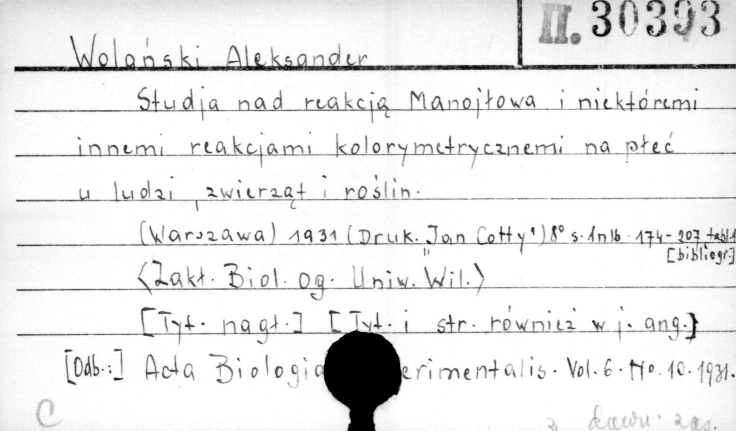 II. 30393
Wolański Aleksander
Studja nad reakcją Manojłowa i niektóremi
innemi reakcjami kolorymetrycznemi na płeć
u ludzi, zwierząt i roślin.
(Warszawa) 1931 (Druk. "Jan Cotty") 8° s. 1nlb. 174-207 tabl.1
[bibliogr.]
<Zakł. Biol. og. Uniw. Wil.>
[Tyt. nagł.] [Tyt. i str. również w j. ang.]
[Odb.:] Acta Biologia erimentalis. Vol. 6. No. 10. 1931.
C zas.